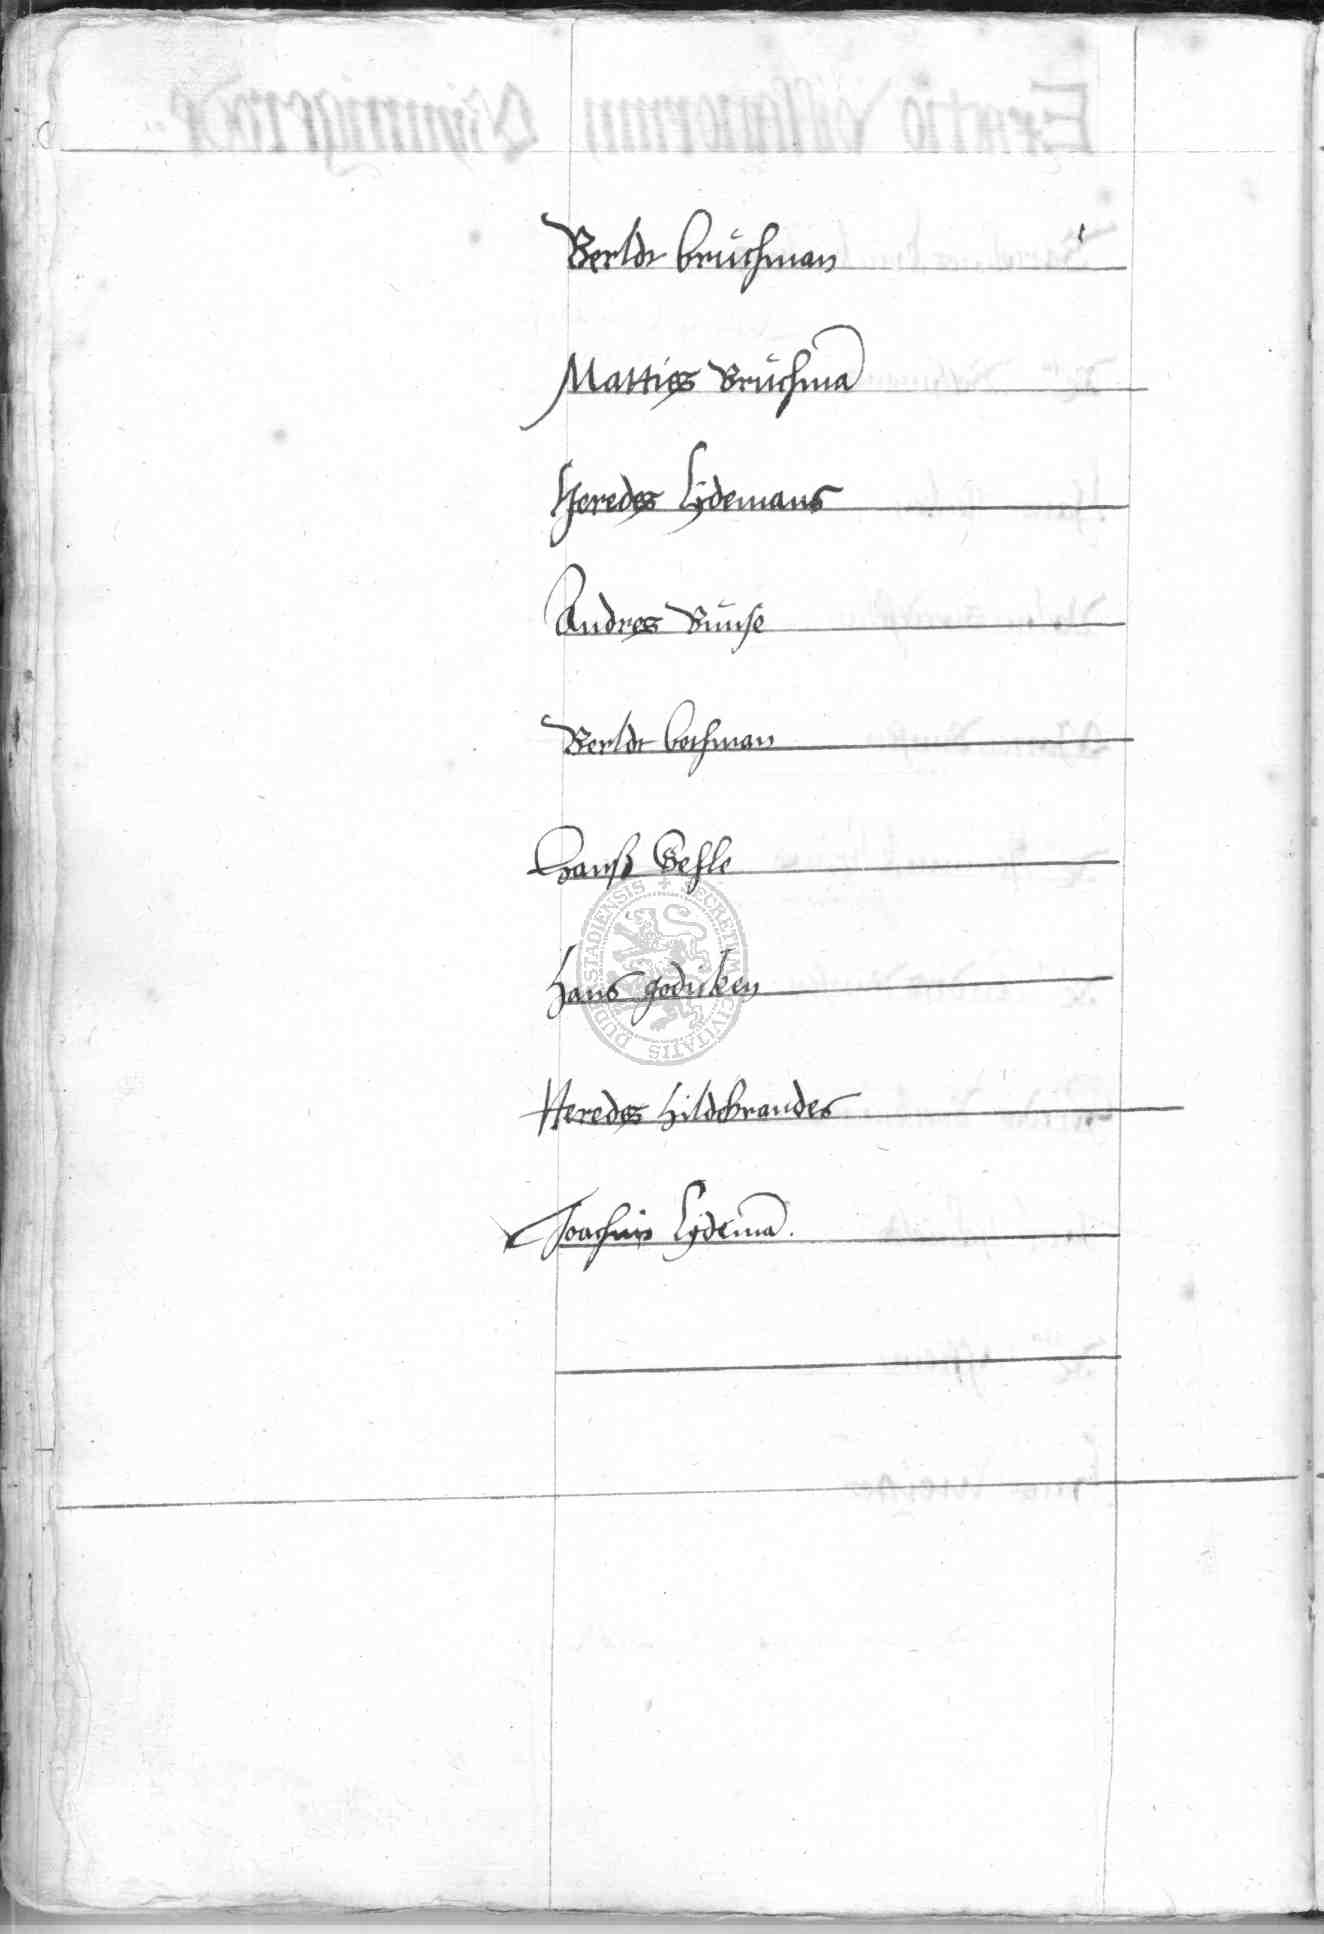 Berldt bruchman
Matties Bruchmā
Heredes Lydemans
Andres Bunse
Berldt bochman
Hanß
Hans goduken
Heredes hildebrandes
Joachim Lydemā.
SECRETUM CIVITATIS DUDERSTADIENSIS